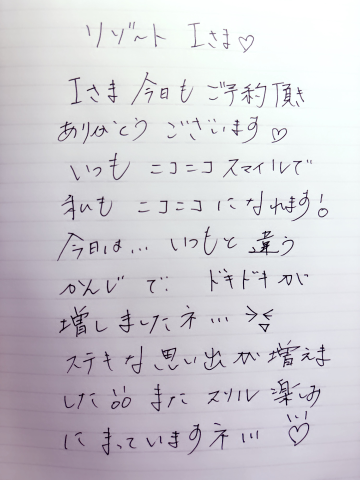 リゾート Iさま♡
Iさま 今日も ご予約頂き
ありがとう ございます♡
いつも ニコニコ スマイルで
私も ニコニコ になれます!
今日は... いつもと 違う
かんじ で ドキドキが
増しましたネ...
ステキな 思い出が 増えま
した また スリル 楽しみ
にまっていますネ... ♡